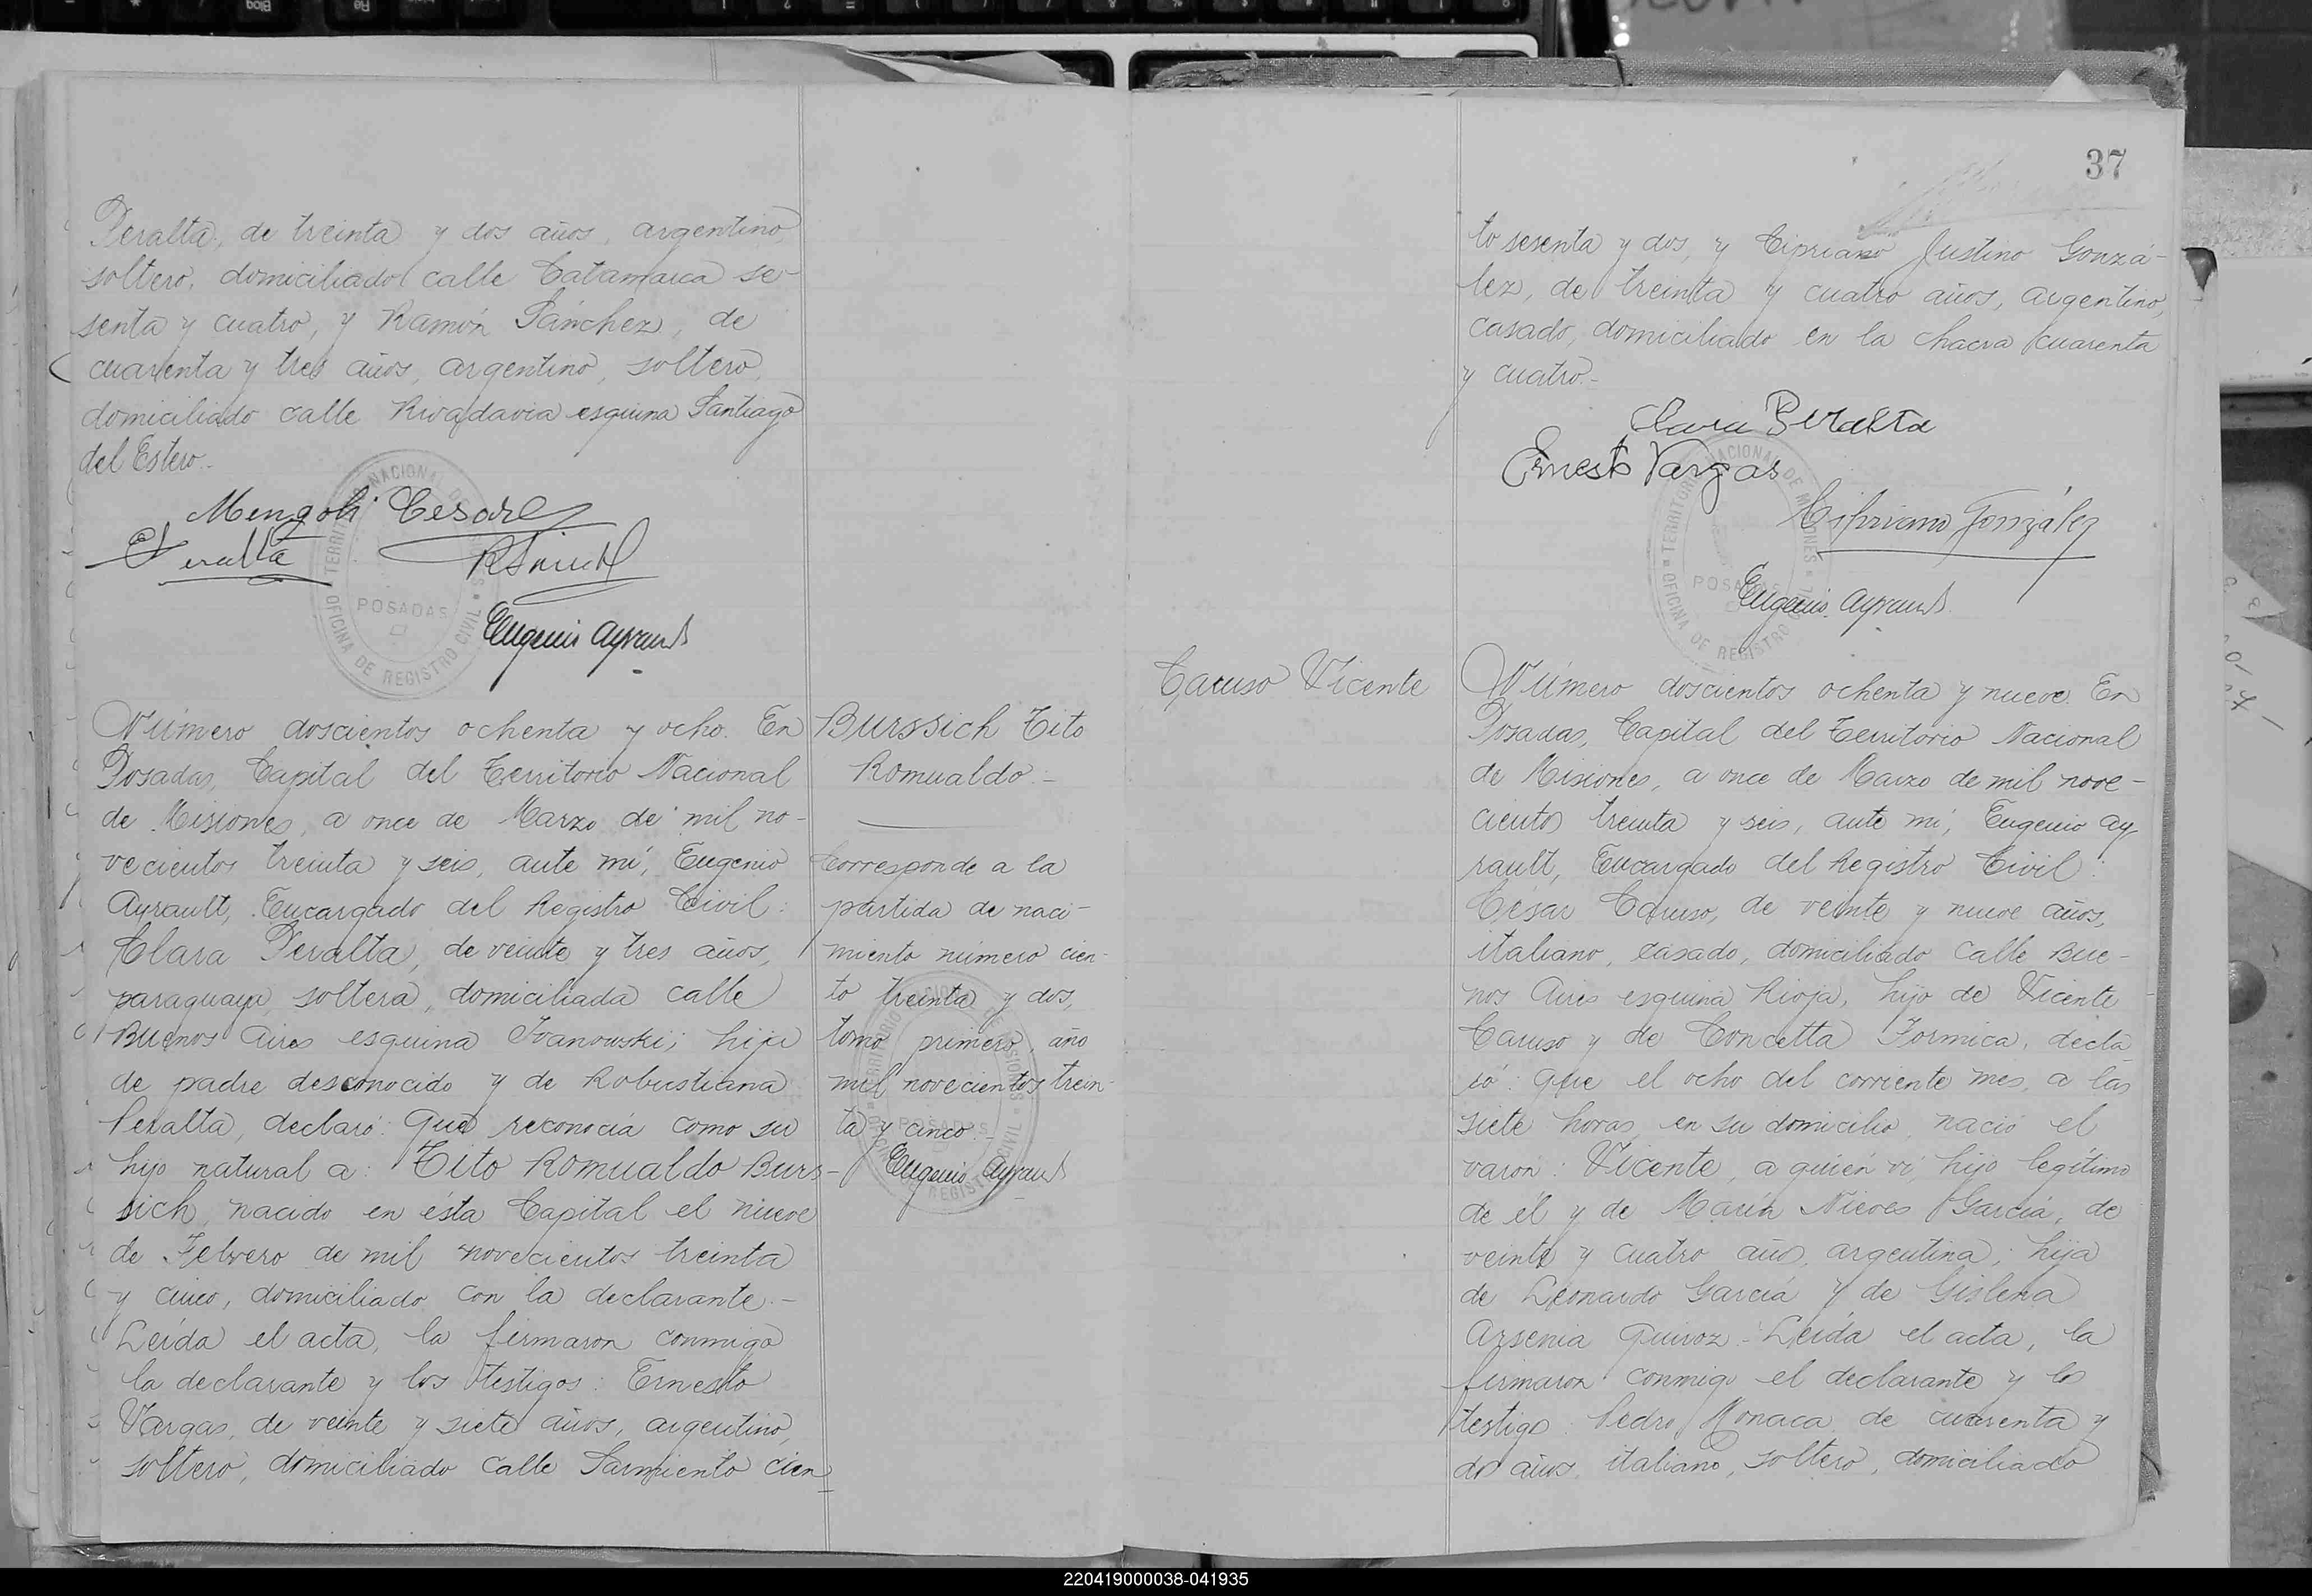 Peralta, de treinta y dos años, argentino,
soltero, domiciliado calle Catamarca se-
senta y cuatro, y Ramón Sánchez, de
cuarenta y tres años, argentino, soltero,
domiciliado calle Rivadavia esquina Santiago
del Estero.-
Mengoli Cesare
Peralta
Eugenio Ayrault
TERRITORIO NACIONAL DE MISIONES
POSADAS
OFICINA DE REGISTRO CIVIL
Número doscientos ochenta y ocho. En
Posadas, Capital del Territorio Nacional
de Misiones, a once de Marzo de mil no-
vecientos treinta y seis, ante mí, Eugenio
Ayrault, Encargado del Registro Civil:
Clara Peralta, de veinte y tres años,
paraguaya, soltera, domiciliada calle
Buenos Aires esquina Ivanowski; hija
de padre desconocido y de Robustiana
Peralta, declaró: Que reconocía como su
hijo natural a: Tito Romualdo Burs-
sich, nacido en ésta Capital el nueve
de Febrero de mil novecientos treinta
y cinco, domiciliado con la declarante.-
Leída el acta, la firmaron conmigo
la declarante y los testigos: Ernesto
Vargas, de veinte y siete años, argentino,
soltero, domiciliado calle Sarmiento cien-
Burssich Tito
Romualdo.-
Corresponde a la
partida de naci-
miento número cien-
to treinta y dos,
tomo primero, año
mil novecientos trein-
ta y cinco.-
Eugenio Ayrault
37
to sesenta y dos, y Cipriano Justino Gonzá-
lez, de treinta y cuatro años, argentino,
casado, domiciliado en la chacra cuarenta
y cuatro.-
Clara Peralta
Ernesto Vargas
Cipriano González
Eugenio Ayrault
TERRITORIO NACIONAL DE MISIONES
POSADAS
OFICINA DE REGISTRO CIVIL
Caruso Vicente
Número doscientos ochenta y nueve. En
Posadas, Capital del Territorio Nacional
de Misiones, a once de Marzo de mil nove-
cientos treinta y seis, ante mí, Eugenio Ay-
rault, Encargado del Registro Civil:
César Caruso, de veinte y nueve años,
italiano, casado, domiciliado calle Bue-
nos Aires esquina Rioja, hijo de Vicente
Caruso y de Concetta Formica, decla-
ró: Que el ocho del corriente mes, a las
siete horas, en su domicilio, nació el
varón: Vicente, a quién ví, hijo legítimo
de él y de María Nieves García, de
veinte y cuatro años, argentina; hija
de Leonardo García y de Gislena
Arsenia Quiroz.- Leída el acta, la
firmaron conmigo el declarante y los
testigos: Pedro Monaca, de cuarenta y
dos años, italiano, soltero, domiciliado
220419000038-041935